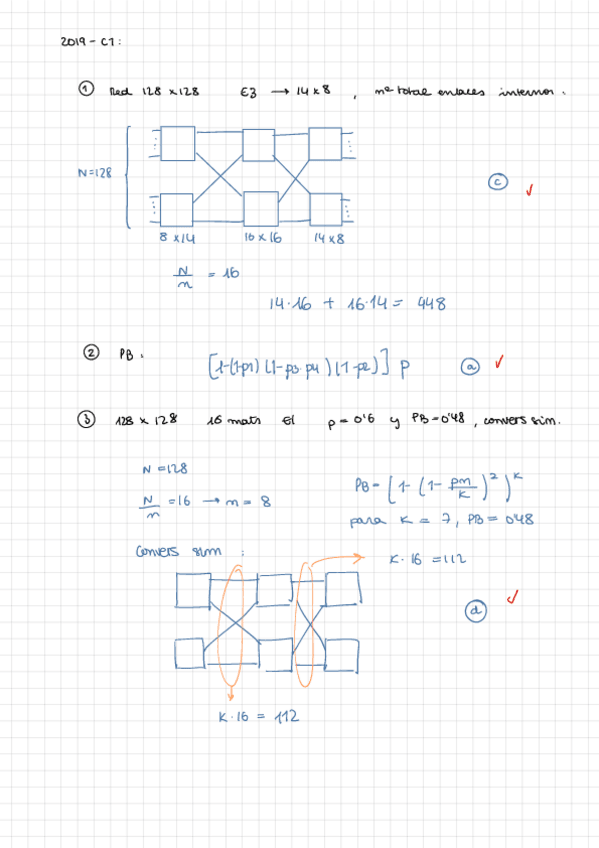 2019 - C1:
① Red 128 x 128 E3 → 14 x 8 , nº total enlaces internos.
N=128
ⓒ ✓
8 x 14 16 x 16 14 x 8
N/n = 16
14·16 + 16·14 = 448
② PB: [1-(1-p1)(1-p3·p4)(1-p2)] p ⓐ ✓
③ 128 x 128 16 mats E1 p = 0'6 y PB=0'48 , convers sim.
N = 128
N/n = 16 → n = 8
PB = (1 - (1 - pn/k)²)^k
para k = 7, PB = 0'48
Convers sim :
k·16 = 112
ⓓ ✓
k·16 = 112